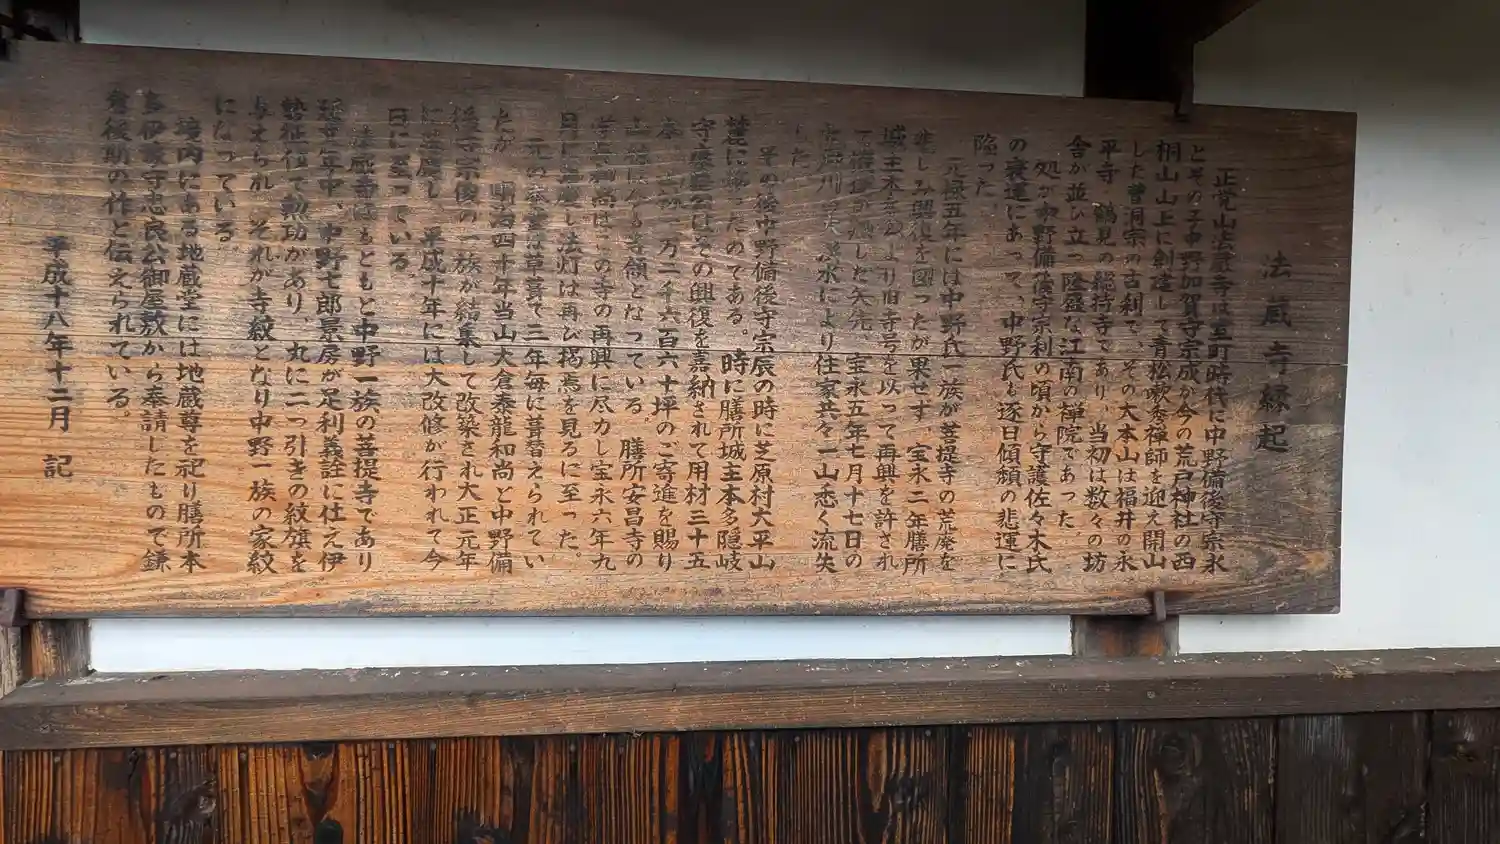 法蔵寺縁起
正覚山法蔵寺は室町時代に中野備後守宗永
とその子中野加賀守宗成が今の荒戸神社の西
桐山山上に創建して青松歌秀禅師を迎え開山
した曹洞宗の古刹で、その大本山は福井の永
平寺、鶴見の総持寺であり、当初は数々の坊
舎が並び立つ隆盛な江南の禅院であった。
処が中野備後守宗利の頃から守護佐々木氏
の衰運にあって、中野氏も逐日傾頽の悲運に
陥った
元禄五年には中野氏一族が菩提寺の荒廃を
悲しみ興復を図ったが果せず、宝永二年膳所
城主本多公より旧寺号を以って再興を許され
て準備が した矢先、宝永五年七月十七日の
川 洪水により住家共々一山悉く流失
した
その後中野備後守宗辰の時に芝原村大平山
麓に移ったのである。時に膳所城主本多隠岐
守康慶公はその興復を嘉納されて用材三十五
本、 一万二千六百六十坪のご寄進を賜り
は今も寺領となっている。膳所安昌寺の
和尚はこの寺の再興に尽力し宝永六年九
月に し法灯は再び掲焉を見るに至った。
元の本堂は草葺で三年毎に葺替えられてい
たが、明治四十年当山大倉泰龍和尚と中野備
後守宗俊の一族が結集して改築され大正元年
に し、平成十年には大改修が行われて今
日に至っている。
法蔵寺はもともと中野一族の菩提寺であり
延文年中、中野七郎景房が足利義詮に仕え伊
勢征伐で勲功があり、丸に二つ引きの紋旗を
与えられ、それが寺紋となり中野一族の家紋
になっている。
境内にある地蔵堂には地蔵尊を祀り膳所本
多伊豫守忠良公御屋敷から奉請したもので鎌
倉後期の作と伝えられている。
平成十八年十二月 記